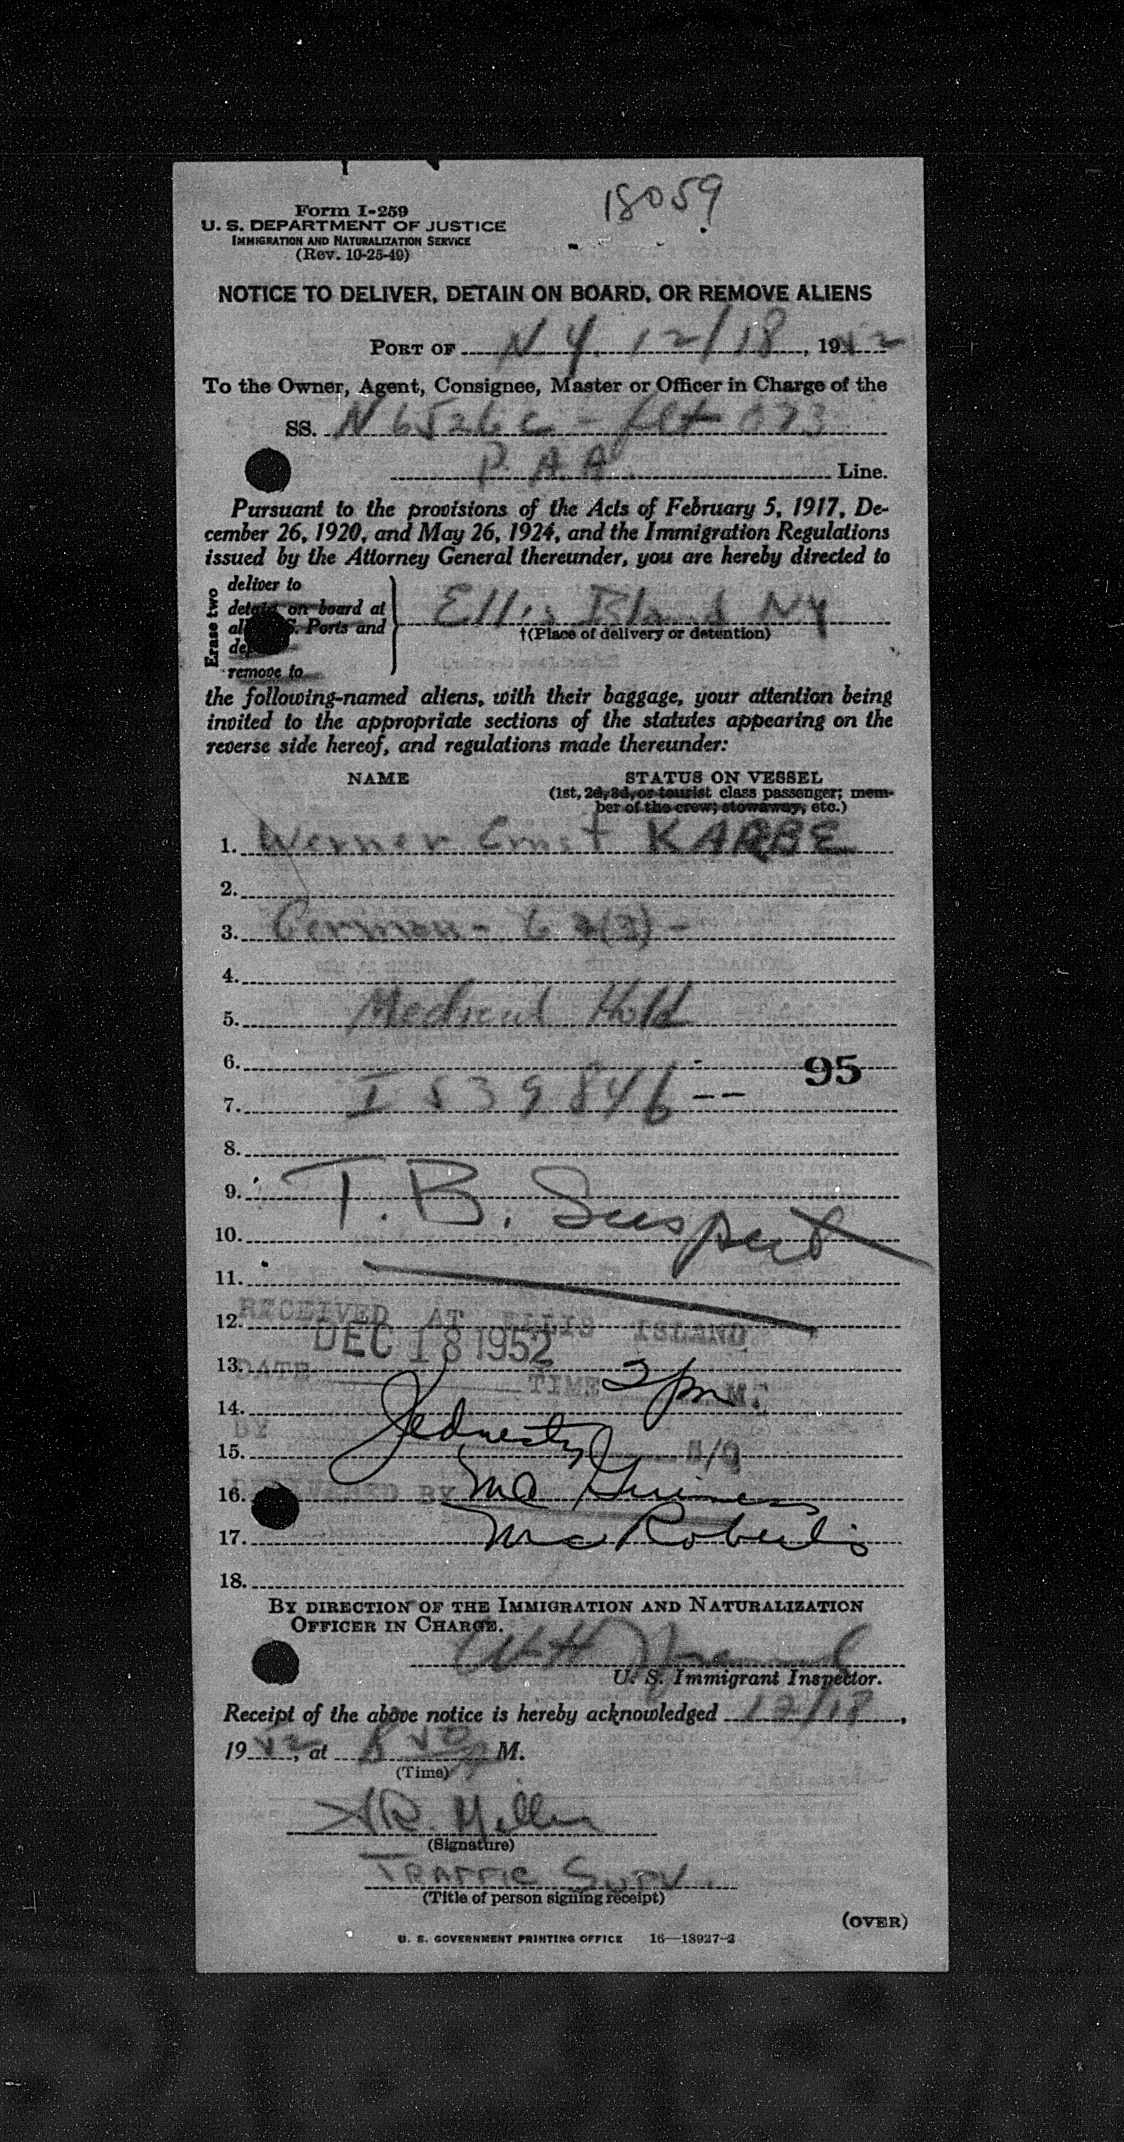 18059
Form I-259
U. S. DEPARTMENT OF JUSTICE
IMMIGRATION AND NATURALIZATION SERVICE
(Rev. 10-25-49)
NOTICE TO DELIVER, DETAIN ON BOARD, OR REMOVE ALIENS
PORT OF N.Y. 12/18, 1952
To the Owner, Agent, Consignee, Master or Officer in Charge of the
SS. N6526C - flt 073
P. A. A. Line.
Pursuant to the provisions of the Acts of February 5, 1917, De-
cember 26, 1920, and May 26, 1924, and the Immigration Regulations
issued by the Attorney General thereunder, you are hereby directed to
Erase two
deliver to
detain on board at
all U. S. Ports and
remove to
Ellis Island NY
†(Place of delivery or detention)
the following-named aliens, with their baggage, your attention being
invited to the appropriate sections of the statutes appearing on the
reverse side hereof, and regulations made thereunder:
NAME STATUS ON VESSEL
(1st, 2d, 3d, or tourist class passenger; mem-
ber of the crew; stowaway, etc.)
1. Werner Ernst KARBE
2.
3. German -
4.
5. Medical Hold
6. 95
7. I 539846 --
8.
9. T. B. Suspect
10.
11.
12. RECEIVED AT ELLIS ISLAND
DEC 18 1952
13. DATE TIME 2 pm M.
14.
BY
15.
16. DELIVERED BY Mc Guiness
17. Mc Roberts
18.
BY DIRECTION OF THE IMMIGRATION AND NATURALIZATION
OFFICER IN CHARGE.
U. S. Immigrant Inspector.
Receipt of the above notice is hereby acknowledged 12/18,
1952, at 8 50 M.
(Time)
A.R. Miller
(Signature)
TRAFFIC SUPV.
(Title of person signing receipt)
(OVER)
U. S. GOVERNMENT PRINTING OFFICE 16—18927-2